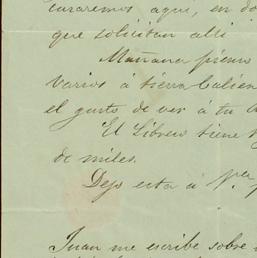 curaremos aqui, en do
que solicitan alli
Mañana pienso
varios á tierra Calien
el gusto de ver á tu
El Librero tiene
de miles.
Dejo esta á N.ra
Juan me escribe sobre